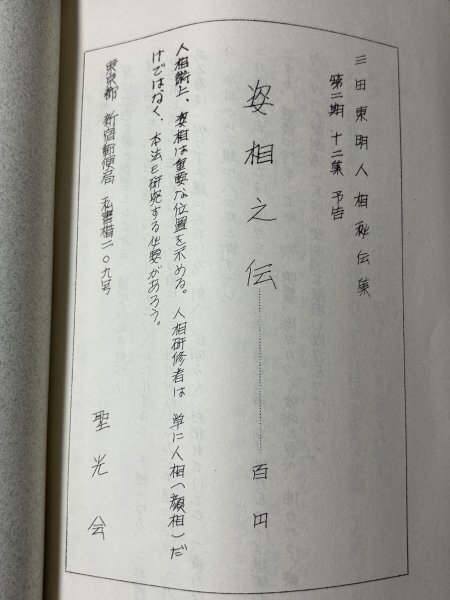 三田東明人相秘伝集
第二期 十二集 予告
姿相之伝……………百円
人相術上、姿相は重要な位置を示める。人相研修者は 単に人相(顔相)だ
けではなく、本法を研究する必要があろう。
東京都 新宿郵便局 私書棺二〇九号
聖光会